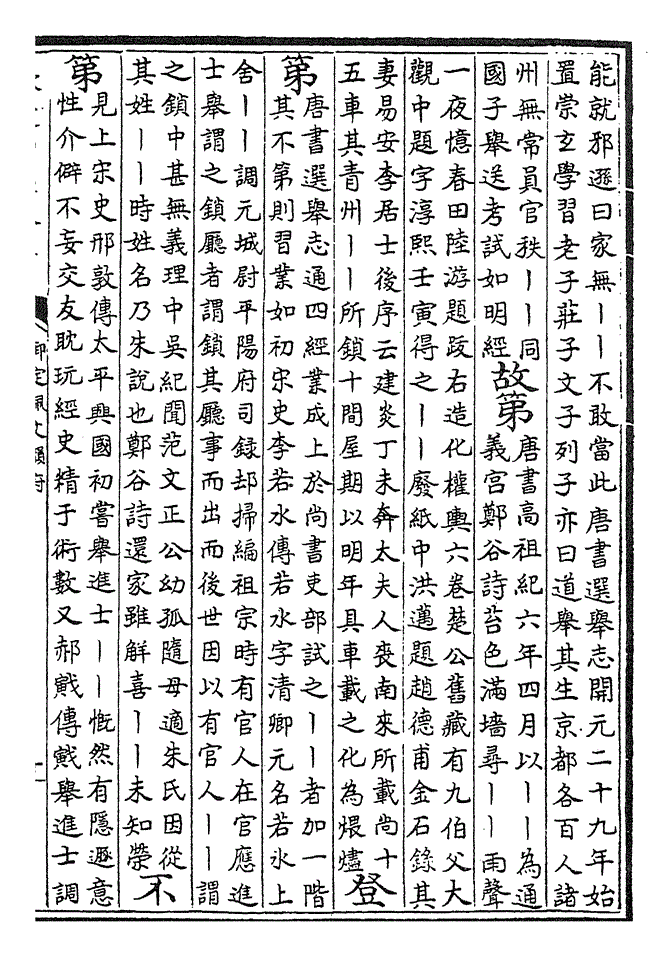 能就邪遜曰家無丨丨不敢當此唐書選舉志開元二十九年始
置崇玄學習老子莊子文子列子亦曰道舉其生京都各百人諸
州無常員官秩丨丨同
國子舉送考試如明經
故第
唐書高祖紀六年四月以丨丨為通
義宮鄭谷詩苔色滿墻尋丨丨雨聲
一夜憶春田陸游題跋右造化權輿六卷楚公舊藏有九伯父大
觀中題字淳熙壬寅得之丨丨廢紙中洪邁題趙德甫金石錄其
妻易安李居士後序云建炎丁未奔太夫人喪南來所載尚十
五車其青州丨丨所鎖十間屋期以明年具車載之化為煨燼
登
第
唐書選舉志通四經業成上於尚書吏部試之丨丨者加一階
其不第則習業如初宋史李若水傳若水字清卿元名若氷上
舍丨丨調元城尉平陽府司録却掃編祖宗時有官人在官應進
士舉謂之鎖廳者謂鎖其廳事而出而後世因以有官人丨丨謂
之鎖中甚無義理中吳紀聞范文正公幼孤隨母適朱氏因從
其姓丨丨時姓名乃朱說也鄭谷詩還家雖解喜丨丨未知榮
不
第
見上宋史邢敦傳太平興國初嘗舉進士丨丨慨然有隱遯意
性介僻不妄交友耽玩經史精于術數又郝戭傳戭舉進士調
御定佩文韻府